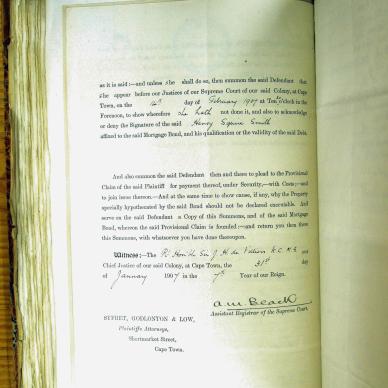 as it is said:—and unless she shall do so, then summon the said Defendant that
she appear before our Justices of our Supreme Court of our said Colony, at Cape
Town, on the 14th day of February 1907 at Ten o'clock in the
Forenoon, to show wherefore she hath not done it, and also to acknowledge
or deny the Signature of the said Henry Squire Smith
affixed to the said Mortgage Bond, and his qualification or the validity of the said Debt.
And also summon the said Defendant then and there to plead to the Provisional
Claim of the said Plaintiff for payment thereof, under Security,—with Costs;—and
to join issue thereon.—And at the same time to show cause, if any, why the Property
specially hypothecated by the said Bond should not be declared executable. And
serve on the said Defendant a Copy of this Summons, and of the said Mortgage
Bond, whereon the said Provisional Claim is founded:—and return you then there
this Summons, with whatsoever you have done thereupon.
Witness:—The Rt Honble Sir J. H. de Villiers K.C.M.G.
Chief Justice of our said Colony, at Cape Town, the 31st day
of January 1907 in the 7th Year of our Reign.
A.M. Beack
Assistant Registrar of the Supreme Court.
SYFRET, GODLONTON & LOW,
Plaintiffs Attorneys,
Shortmarket Street,
Cape Town.